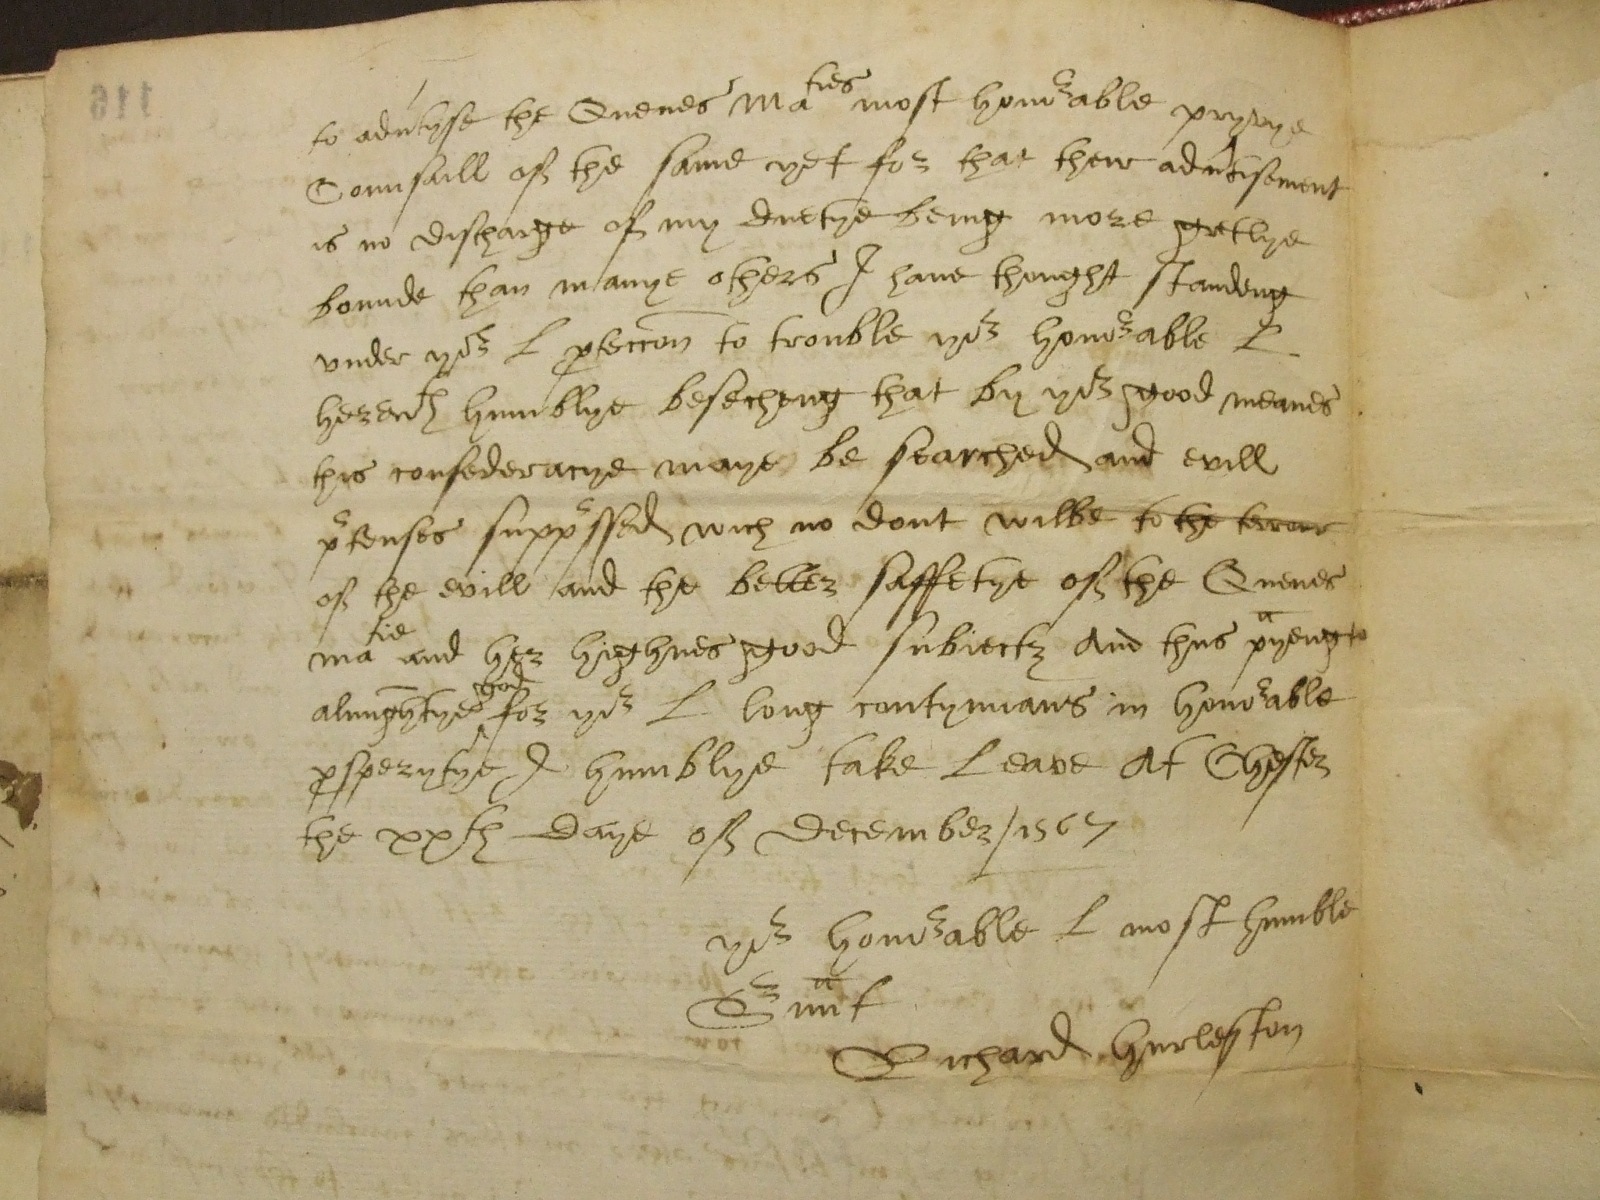 to adu'tyse the Quenes Ma^ties most hono^rable pryvye
Counsaill of the same yet for that their adu'tisement
is no discharge of my duetye being more gretlye
bounde than manye others I have thought standeng
vnder yo^r L p'teccon to trouble yo^r hono^rable L
herew^th humblye besecheng that by yo^r good meanes
this confederacye maye be searched and evill
p^rtenses supp^rssed wich no dout wilbe to the terrour
of the evill and the better saffetye of the Quenes
ma^tie and her highnes good subiectz And thus p^ayeng to
almightye ^god for yo^r L long contynuans in hono^rable
p'sperytye I humblye take Leave At Chester
the xx^th daye of December / 1567
yo^r hono^rable L most humble
S^ru^at
Richard Hurleston
116